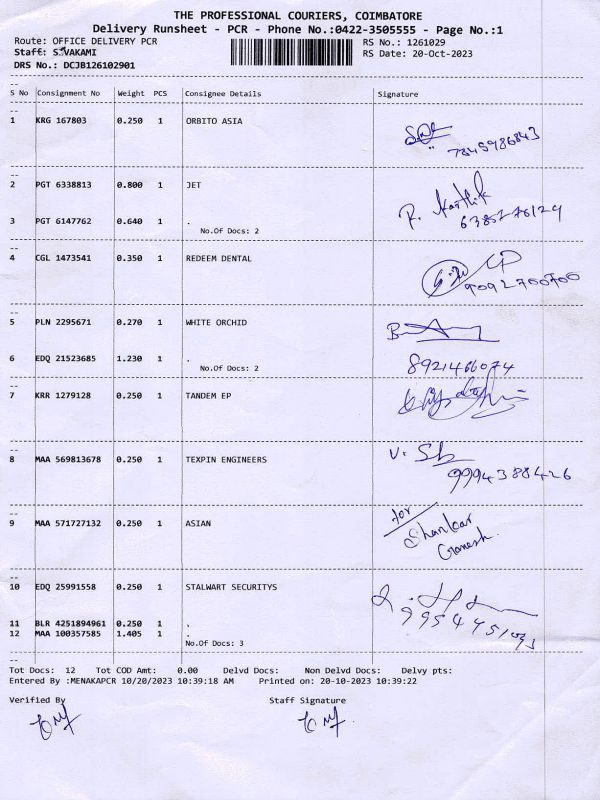 THE PROFESSIONAL COURIERS, COIMBATORE
Delivery Runsheet - PCR - Phone No.:0422-3505555 - Page No.:1
Route: OFFICE DELIVERY PCR RS No.: 1261029
Staff: S.VAKAMI RS Date: 20-Oct-2023
DRS No.: DCJB126102901
S No Consignment No Weight PCS Consignee Details Signature
1 KRG 167803 0.250 1 ORBITO ASIA
2 PGT 6338813 0.800 1 JET
R. Karthik
3 PGT 6147762 0.640 1 .
No.Of Docs: 2
4 CGL 1473541 0.350 1 REDEEM DENTAL
9092700700
5 PLN 2295671 0.270 1 WHITE ORCHID
6 EDQ 21523685 1.230 1 .
No.Of Docs: 2
8921466074
7 KRR 1279128 0.250 1 TANDEM EP
8 MAA 569813678 0.250 1 TEXPIN ENGINEERS
9994388426
9 MAA 571727132 0.250 1 ASIAN
for
Shankar
Ganesh
10 EDQ 25991558 0.250 1 STALWART SECURITYS
11 BLR 4251894961 0.250 1 .
12 MAA 100357585 1.405 1 .
No.Of Docs: 3
Tot Docs: 12 Tot COD Amt: 0.00 Delvd Docs: Non Delvd Docs: Delvy pts:
Entered By :MENAKAPCR 10/20/2023 10:39:18 AM Printed on: 20-10-2023 10:39:22
Verified By Staff Signature